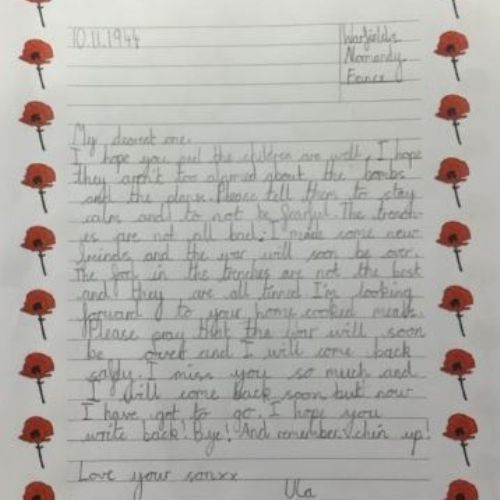 10.11.1944
Warfields
Normandy
France
My dearest one,
I hope you and the children are well, I hope
they aren't too alarmed about the bombs
and the planes. Please tell them to stay
calm and to not be fearful. The trench-
es are not all bad; I made some new
freinds and the war will soon be over.
The food in the trenches are not the best
and they are all tinned I'm looking
forward to your home cooked meals.
Please pray that the war will soon
be over and I will come back
safly. I miss you so much and
I will come back soon but now
I have got to go. I hope you
write back! Bye! And remember: chin up!
Love your son xx